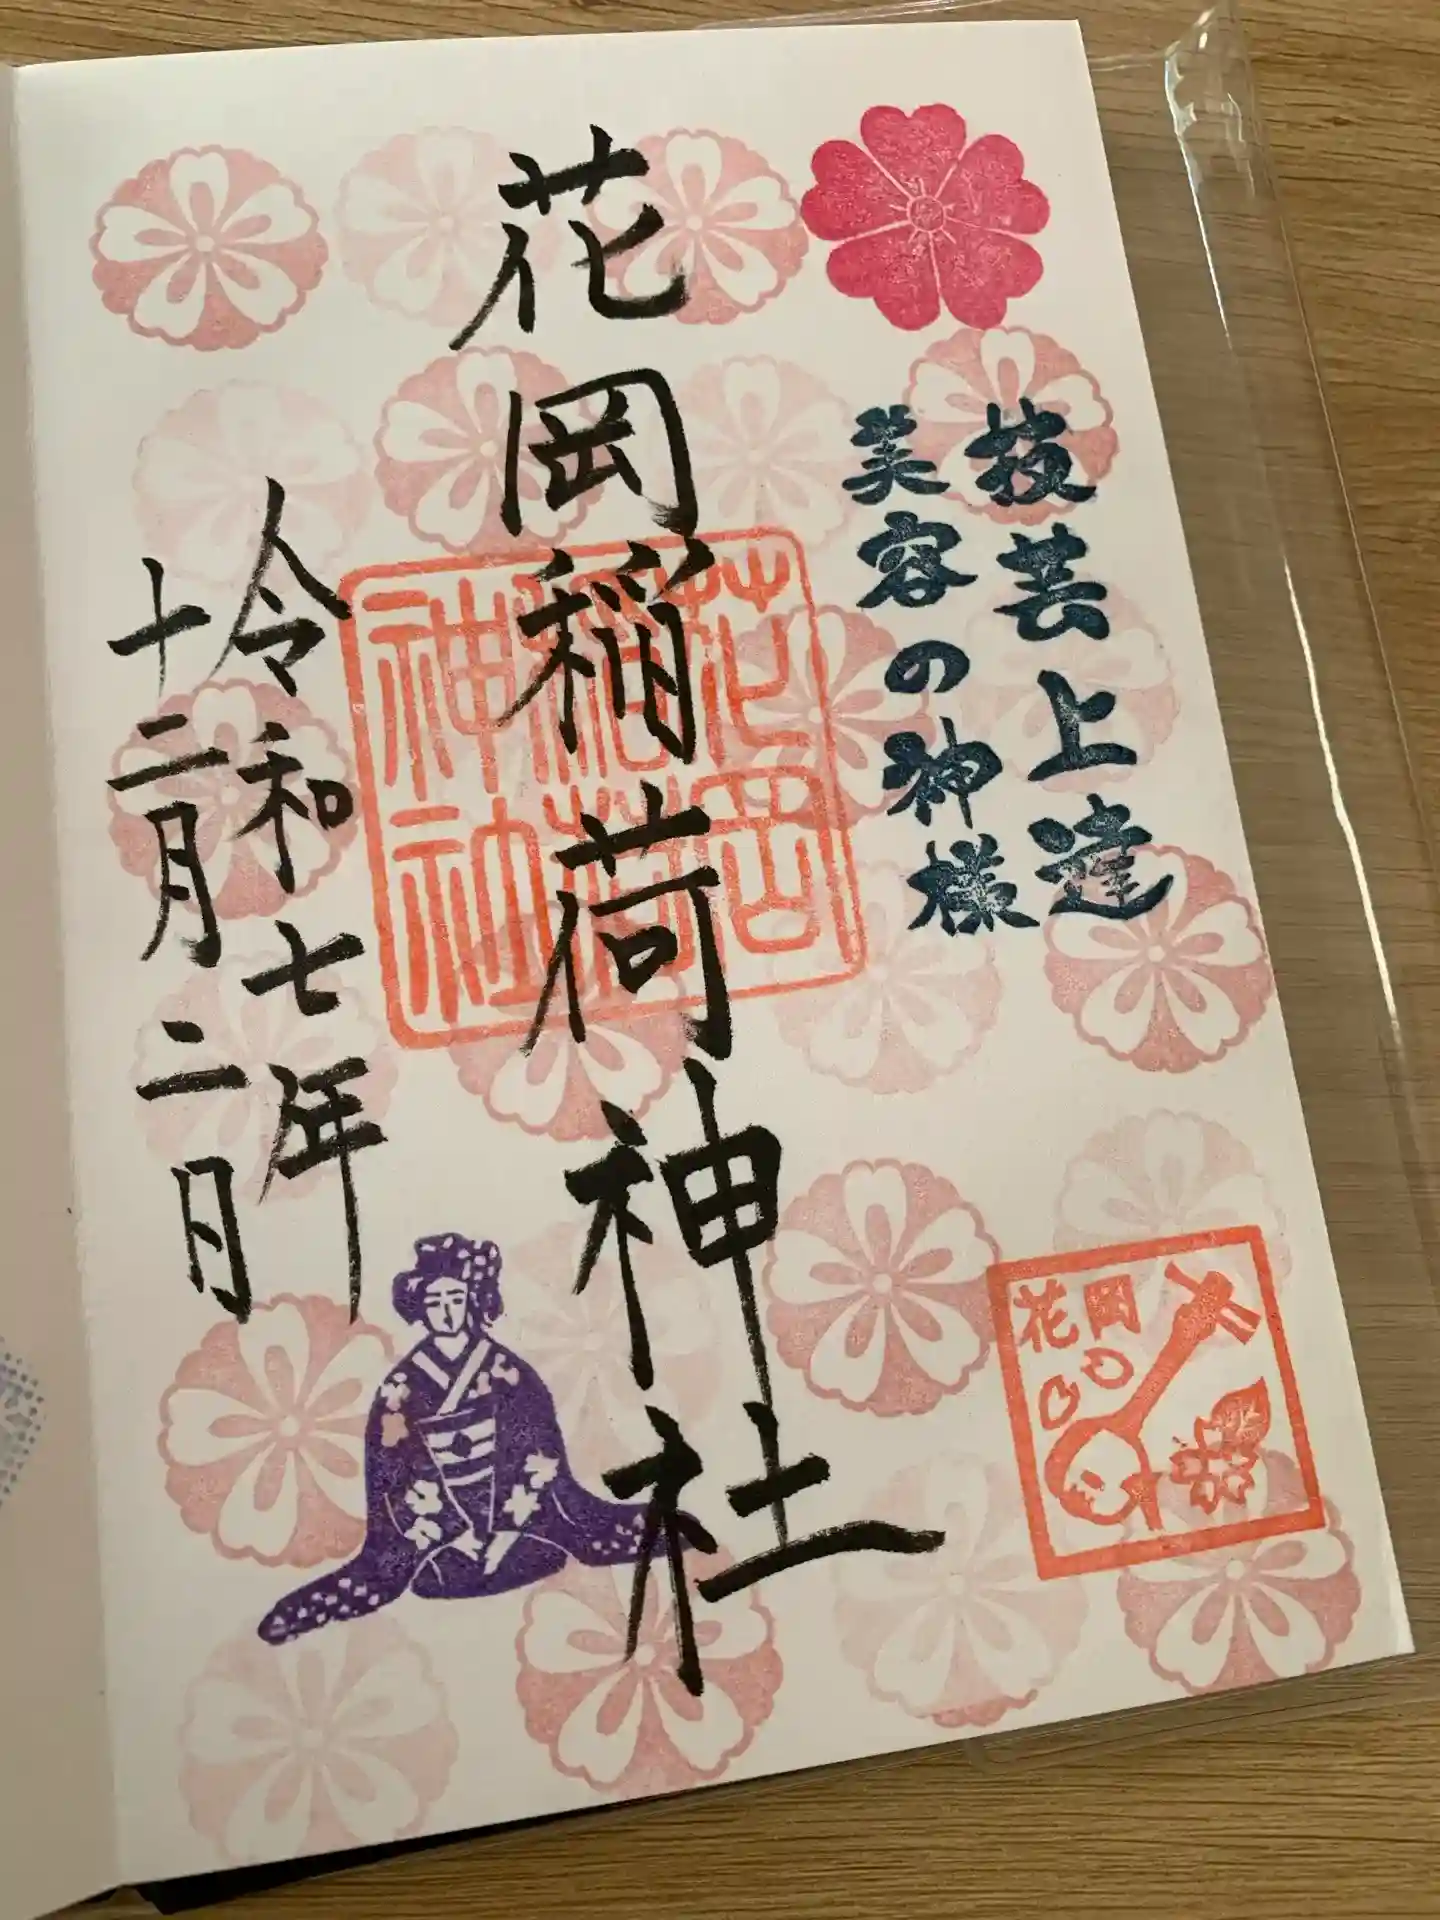 技芸上達
美容の神様
花岡稲荷神社
花岡稲荷神社
令和七年
十二月二日
花岡